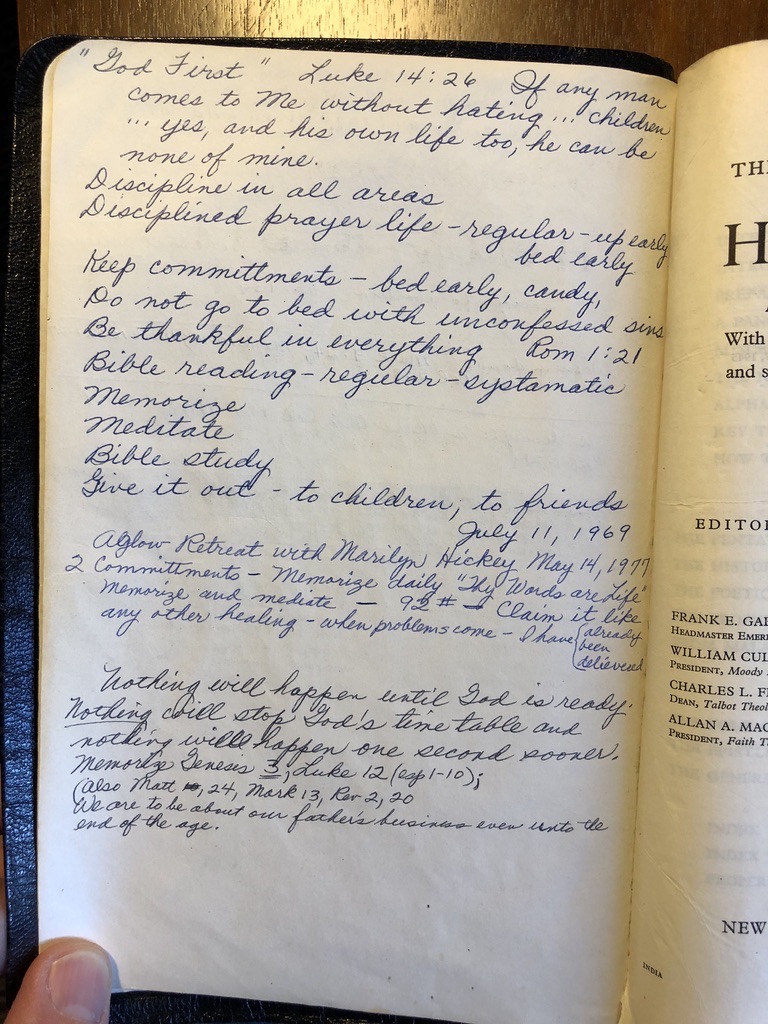 "God First" Luke 14:26 If any man
comes to Me without hating ... children
... yes, and his own life too, he can be
none of mine.
Discipline in all areas
Disciplined prayer life - regular - up early
bed early
Keep committments - bed early, candy,
Do not go to bed with unconfessed sins
Be thankful in everything Rom 1:21
Bible reading - regular - systamatic
Memorize
Meditate
Bible study
Give it out - to children, to friends
July 11, 1969
Aglow Retreat with Marilyn Hickey May 14, 1977
2 Committments - Memorize daily "Thy Words are Life"
Memorize and mediate - 92 # - Claim it like
any other healing - when problems come - I have {already
been
delievered
Nothing will happen until God is ready.
Nothing will stop God's time table and
nothing will happen one second sooner.
Memorize Genesis 3, Luke 12 (esp 1-10);
(also Matt 24, Mark 13, Rev 2, 20
We are to be about our father's business even unto the
end of the age.
TH
H
With
and s
EDITO
FRANK E. GAE
HEADMASTER EMERI
WILLIAM CUL
PRESIDENT, Moody
CHARLES L. F
DEAN, Talbot Theol
ALLAN A. MAC
PRESIDENT, Faith T
NEW
INDIA